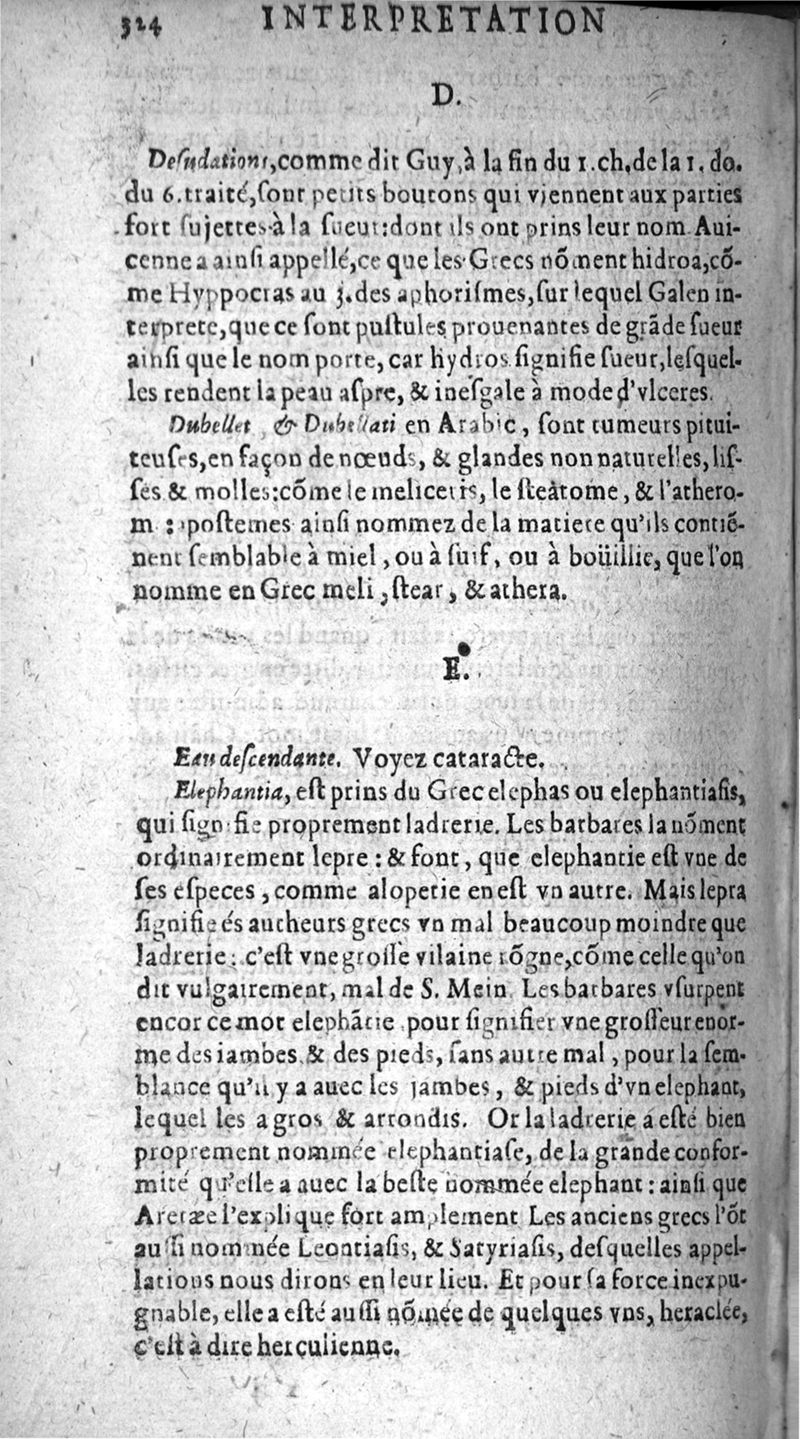 324 INTERPRETATION
D.
Deſudations, comme dit Guy, à la fin du 1. ch. de la 1. do.
du 6. traité, ſont petits boutons qui viennent aux parties
fort ſujettes à la ſueur: dont ils ont prins leur nom. Aui-
cenne a ainſi appellé, ce que les Grecs nõment hidroa, cõ-
me Hyppocras au 3. des aphoriſmes, ſur lequel Galen in-
terprete, que ce ſont puſtules prouenantes de grãde ſueur
ainſi que le nom porte, car hydros ſignifie ſueur, leſquel-
les rendent la peau aſpre, & ineſgale à mode d'vlceres.
Dubellet & Dubellati en Arabic, ſont tumeurs pitui-
teuſes, en façon de nœuds, & glandes non naturelles, liſ-
ſes & molles: cõme le meliceris, le ſteàtome, & l'athero-
m : apoſtemes ainſi nommez de la matiere qu'ils contiẽ-
nent ſemblable à miel, ou à ſuif, ou à boüillie, que l'on
nomme en Grec meli, ſtear, & athera.
E.
Eau deſcendante. Voyez cataracte.
Elephantia, eſt prins du Grec elephas ou elephantiaſis,
qui ſignifie proprement ladrerie. Les barbares la nõment
ordinairement lepre: & font, que elephantie eſt vne de
ſes eſpeces, comme alopetie en eſt vn autre. Mais lepra
ſignifie és autheurs grecs vn mal beaucoup moindre que
ladrerie: c'eſt vne groſſe vilaine rõgne, cõme celle qu'on
dit vulgairement, mal de S. Mein. Les barbares vſurpent
encor ce mot elephãtie pour ſignifier vne groſſeur enor-
me des iambes & des pieds, ſans autre mal, pour la ſem-
blance qu'il y a auec les jambes, & pieds d'vn elephant,
lequel les a gros & arrondis. Or la ladrerie a eſté bien
proprement nommée elephantiaſe, de la grande confor-
mité qu'elle a auec la beſte nommée elephant: ainſi que
Aretæe l'explique fort amplement. Les anciens grecs l'õt
auſſi nommée Leontiaſis, & Satyriaſis, deſquelles appel-
lations nous dirons en leur lieu. Et pour ſa force inexpu-
gnable, elle a eſté auſſi nõmée de quelques vns, heraclée,
c'eſt à dire herculienne.